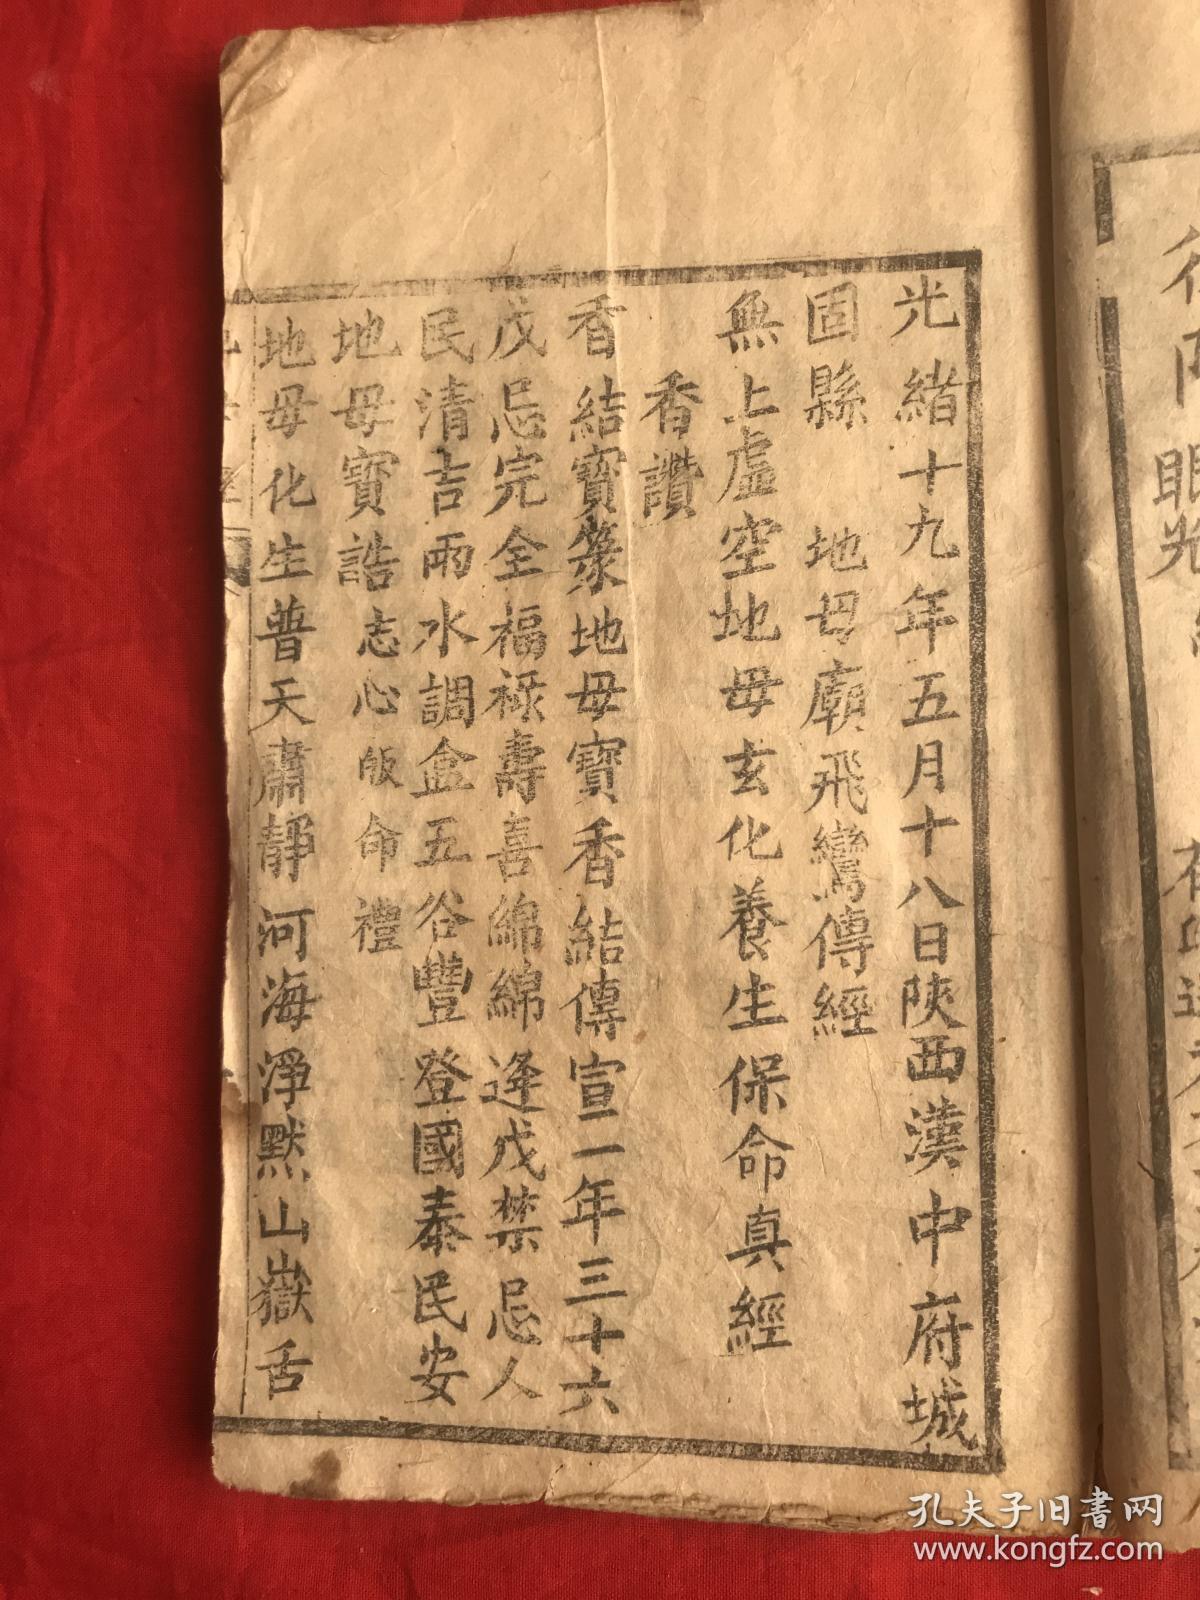 光緒十九年五月十八日陝西漢中府城
固縣　地母廟飛鸞傳經
無上虛空地母玄化養生保命真經
香讚
香結寳篆地母寳香結傳宣一年三十六
戊忌完全福祿壽喜綿綿逄戊禁忌人
民清吉雨水調盆五谷豐登國泰民安
地母寳誥志心皈命禮
地母化生普天肅靜河海淨默山嶽舌
孔夫子旧书网
www.kongfz.com